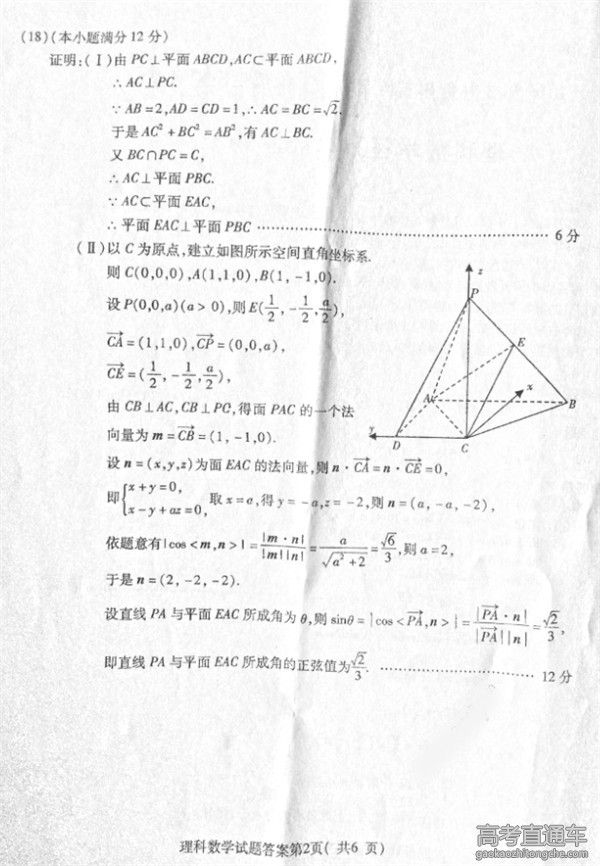 (18)(本小题满分12分)
证明:(Ⅰ)由 PC⊥平面 ABCD,AC⊂平面 ABCD,
∴ AC⊥PC.
∵ AB=2,AD=CD=1,∴ AC=BC=√2,
于是 AC²+BC²=AB²,有 AC⊥BC.
又 BC∩PC=C,
∴ AC⊥平面 PBC.
∵ AC⊂平面 EAC,
∴ 平面 EAC⊥平面 PBC ………………………… 6分
(Ⅱ)以 C 为原点,建立如图所示空间直角坐标系.
则 C(0,0,0),A(1,1,0),B(1,-1,0).
设 P(0,0,a)(a>0),则 E(1/2,-1/2,a/2),
CA→=(1,1,0),CP→=(0,0,a),
CE→=(1/2,-1/2,a/2),
由 CB⊥AC,CB⊥PC,得面 PAC 的一个法
向量为 m=CB→=(1,-1,0).
设 n=(x,y,z)为面 EAC 的法向量,则 n·CA→=n·CE→=0,
即{x+y=0, x-y+az=0, 取 x=a,得 y=-a,z=-2,则 n=(a,-a,-2),
依题意有|cos<m,n>|=|m·n|/|m||n|=a/√(a²+2)=√6/3,则 a=2,
于是 n=(2,-2,-2).
设直线 PA 与平面 EAC 所成角为 θ,则 sinθ=|cos<PA→,n>|=|PA→·n|/|PA→||n|=√2/3,
即直线 PA 与平面 EAC 所成角的正弦值为√2/3. ………………… 12分
z
P
E
x
A
B
y
D
C
理科数学试题答案第2页(共6 页)
高考直通车
gaokaozhitongche.com